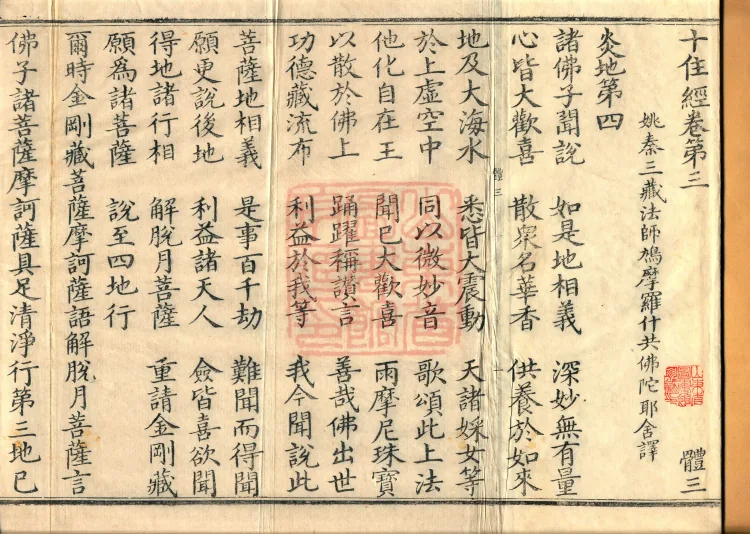 十住經卷第三 體三
姚秦三藏法師鳩摩羅什共佛陀耶舍譯
炎地第四
諸佛子聞說 如是地相義 深妙無有量
心皆大歡喜 散衆名華香 供養於如來
地及大海水 悉皆大震動 天諸婇女等
於上虛空中 同以微妙音 歌頌此上法
他化自在王 聞已大歡喜 雨摩尼珠寶
以散於佛上 踊躍稱讚言 善哉佛出世
功德藏流布 利益於我等 我今聞說此
菩薩地相義 是事百千劫 難聞而得聞
願更說後地 利益諸天人 僉皆喜欲聞
得地諸行相 解脫月菩薩 重請金剛藏
願爲諸菩薩 說至四地行
爾時金剛藏菩薩摩訶薩語解脫月菩薩言
佛子諸菩薩摩訶薩具足清淨行第三地已
體三 一